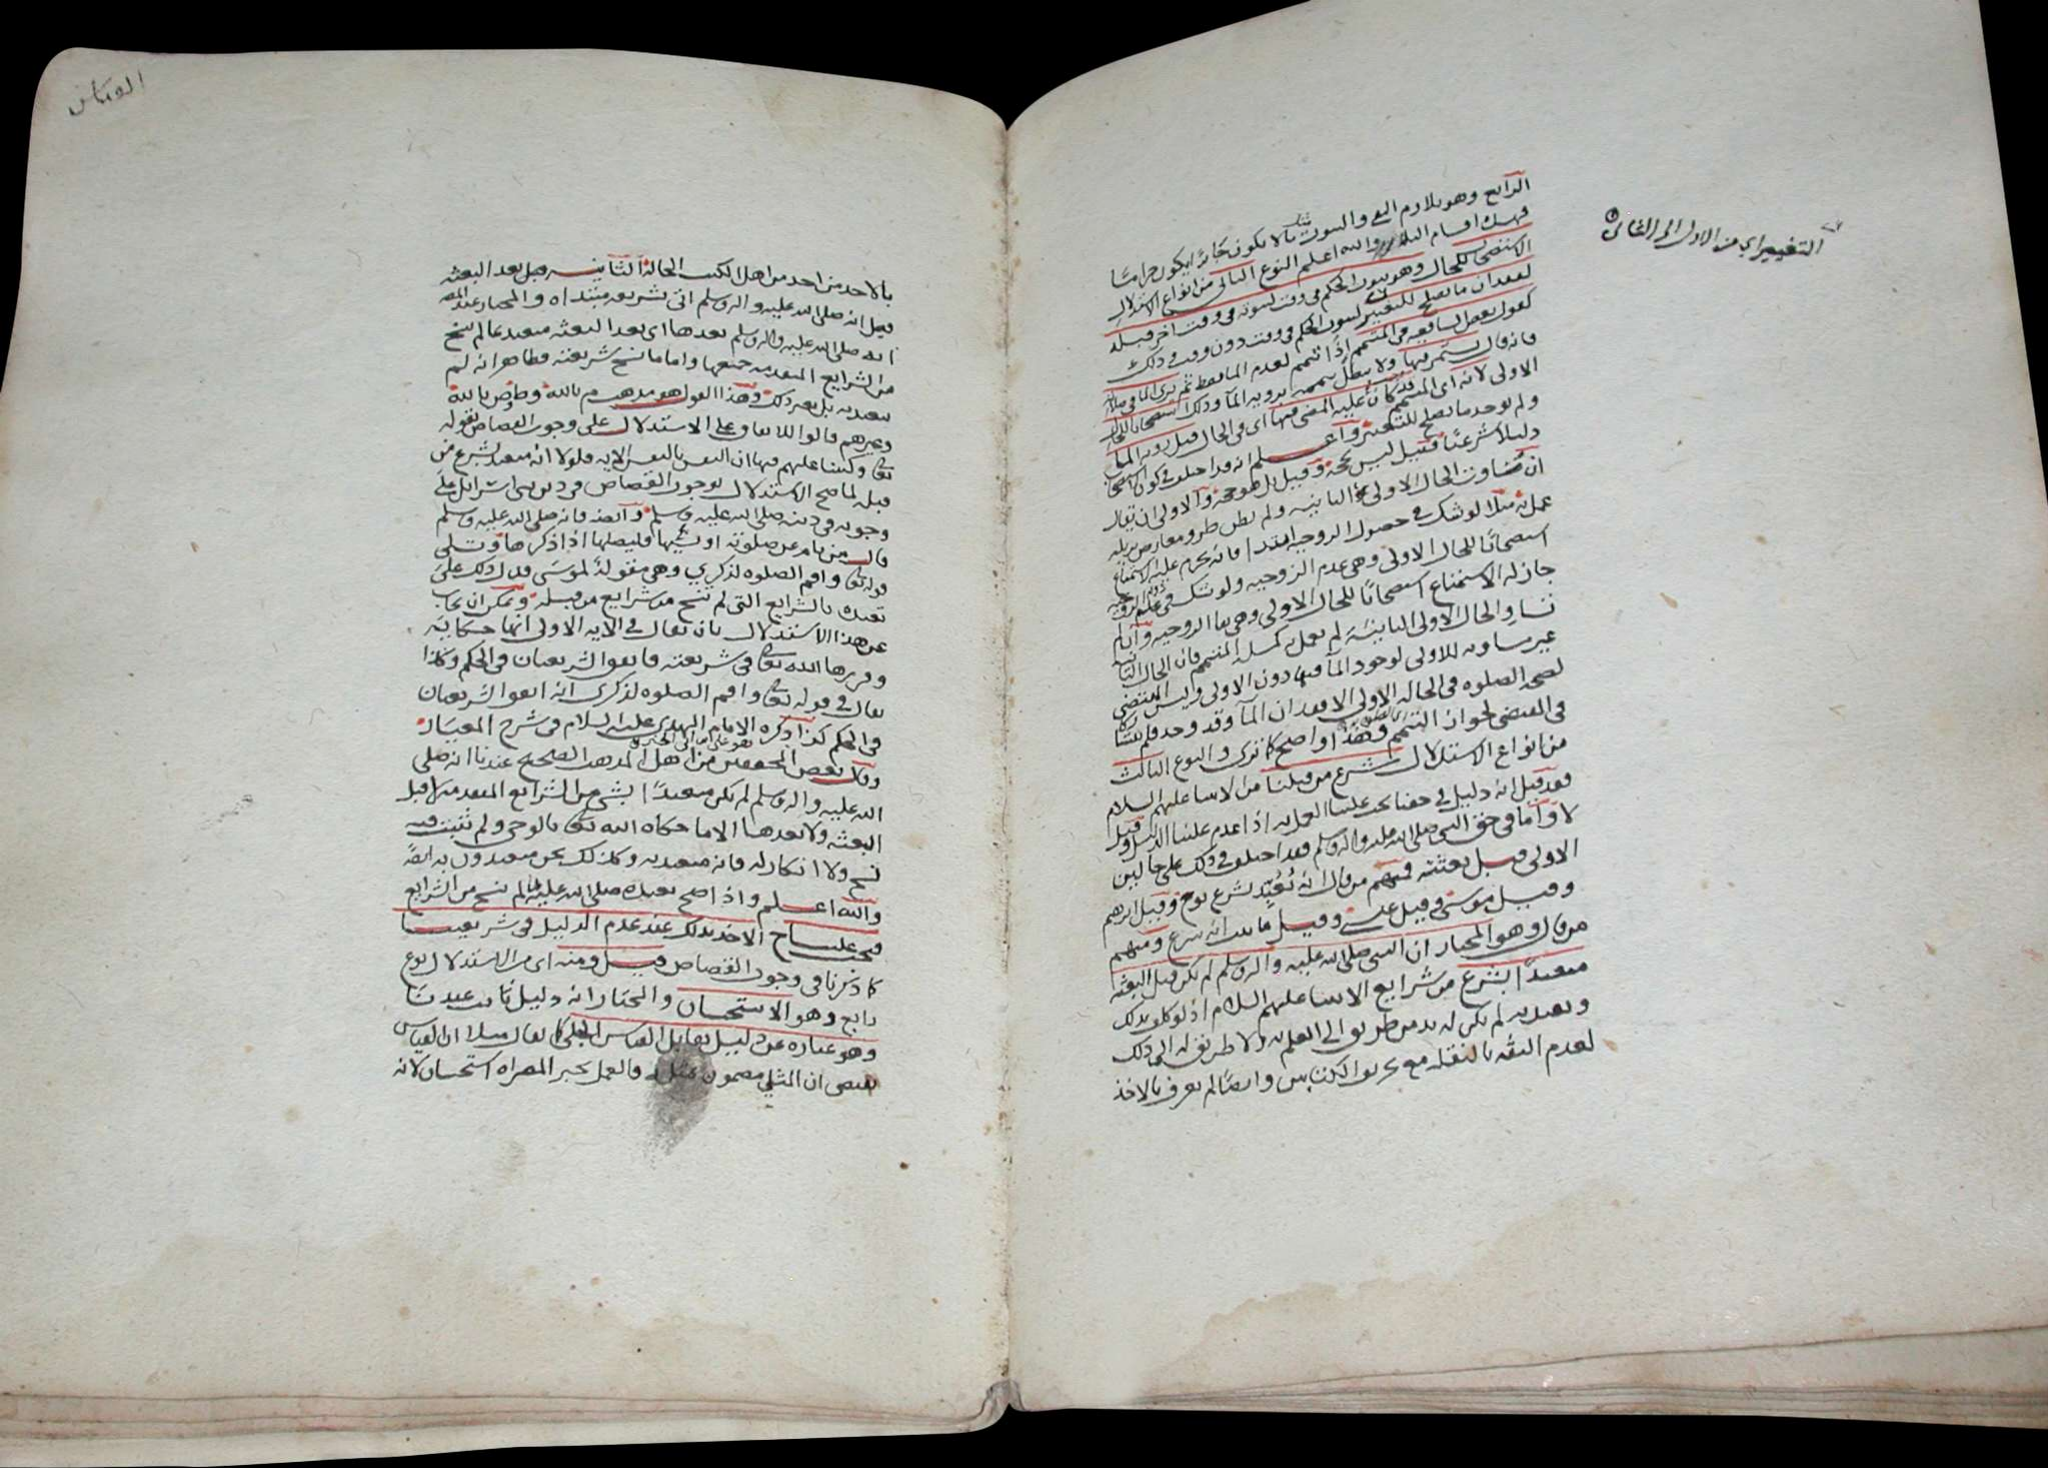 الرابع وهو تلازم النفي والثبوت مثاله ما لا يكون جائزا يكون حراما
فهذه اقسام التلازم والله اعلم النوع الثاني من انواع الاستدلال
الاستصحاب للحال وهو ثبوت الحكم في وقت لثبوته في وقت اخر قبله
لفقدان ما يصلح للتغيير لثبوت الحكم في وقت دون وقت وذلك
كقول بعض الشافعيه في المتيمم اذا تيمم لعدم الما فصلى ثم يرى الما في صلاته
فانه قال يستمر فيها ولا يبطل تيممه برويه الما وذلك استصحابا للحال
الاولى لانه اي المتيمم قد كان عليه المضي فيها اي في الحال قبل رويه الما
ولم يوجد ما يصلح للتغيير واعلم انه قد اختلف في كون الاستصحاب
دليلا شرعيا فقيل ليس بحجة وقيل بل هو حجة والاولى ان يقال
ان تساوت الحال الاولى والثانيه ولم يظن طرو معارض يزيله
عمل به مثلا لو شك في حصول الزوجيه ابتدا فانه يحرم عليه الاستمتاع
استصحابا للحال الاولى وهي عدم الزوجيه ولو شك في عدم الزوجيه
جاز له الاستمتاع استصحابا للحال الاولى وهي بقا الزوجيه وان لم
تساو الحال الاولى الثانية لم يعمل به كمسئلة المتيمم فان الحال الثانيه
غير مساويه للاولى لوجود الما فيها دون الاولى وليس المقتضي
لصحة الصلوه في الحاله الاولى الا فقدان الما وقد وجد فلم يتساويا
في المقتضي لجواز التيمم وهذا واضح كما ترى والنوع الثالث
من انواع الاستدلال شرع من قبلنا من الانبيا عليهم السلام
فقد قيل انه دليل في حقنا يجب علينا العمل به اذا عدم علينا الدليل وقيل
لا واما في حق النبي صلى الله عليه واله وسلم فقد اختلف في ذلك على حالين
الاولى قبل بعثته فمنهم من قال انه تُعُبِّد بشرع نوح وقيل ابرهيم
وقيل موسى وقيل عيسى وقيل ما ثبت انه شرع ومنهم
من قال وهو المختار ان النبي صلى الله عليه واله وسلم لم يكن قبل البعثه
متعبدا بشرع من شرايع الانبيا عليهم السلام اذ لو كان كذلك
وتعبد به لم يكن له بد من طريق الى العلم به ولا طريق له الى ذلك
لعدم الثقه بالنقله مع تحريف الكتابين وايضا لم يعرف بالاخذ
التغيير اي من الاول الى الثاني
بالاخذ من احد من اهل الكتب الحالة الثانيه قيل بعد البعثه
فقيل انه صلى الله عليه واله وسلم اتى بشريعه مبتداه والمختار عند المص
انه صلى الله عليه واله وسلم بعدها اي بعد البعثه متعبد بما لم ينسخ
من الشرايع المتقدمه جميعها واما ما نسخ شريعته فظاهر انه لم
يتعبد به بل بغير ذلك وهذا القول هو مذهب م بالله وط وص بالله
وغيرهم قالوا للاتفاق على الاستدلال على وجوب القصاص بقوله
تعالى وكتبنا عليهم فيها ان النفس بالنفس الايه فلولا انه متعبد بشرع من
قبله لما صح الاستدلال بوجوب القصاص في دين بني اسرائيل على
وجوبه في دينه صلى الله عليه وسلم وايضا فانه صلى الله عليه وسلم
قال من نام عن صلوته او نسيها فليصلها اذا ذكرها وتلى
قوله تعالى واقم الصلوه لذكري وهي مقولة لموسى فدل ذلك على
تعبده بالشرايع التي لم تنسخ من شرايع من قبله ويمكن ان يجاب
عن هذا الاستدلال بان يقال في الايه الاولى انها حكايه
وقررها الله تعالى في شريعته فاتفق الشريعتان في الحكم وكذا
يقال في قوله تعالى واقم الصلوه لذكري انه اتفق الشريعتان
في الحكم كذا ذكره الامام المهدي عليه السلام في شرح المعيار
وقال بعض المحققين من اهل المذهب الصحيح عندنا انه صلى
الله عليه واله وسلم لم يكن متعبدا بشي من الشرايع المتقدمه لا قبل
البعثه ولا بعدها الا ما حكاه الله تعالى بالوحي ولم يثبت فيه
نسخ ولا انكار له فانه متعبد به وكذلك نحن متعبدون به ايضا
والله اعلم واذا صح تعبده صلى الله عليه بما لم ينسخ من الشرايع
فيجب علينا الاخذ بذلك عند عدم الدليل في شريعتنا
كما ذكرنا في وجوب القصاص قيل ومنه اي من الاستدلال نوع
رابع وهو الاستحسان والمختار انه دليل ثابت عندنا
وهو عباره عن دليل يقابل القياس الجلي كما يقال مثلا ان القياس
يقتضي ان المثلي مضمون بمثله فالعمل بخبر المصراه استحسان لانه